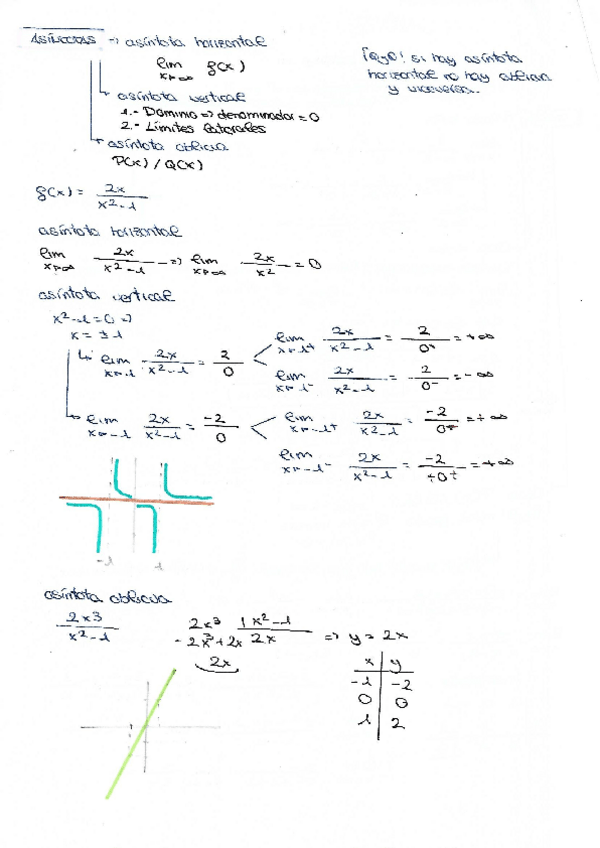 Asíntotas → asíntota horizontal
lim f(x)
x→∞
¡Ojo! si hay asíntota
horizontal no hay oblicua
y viceversa..
asíntota vertical
1.- Dominio ⇒ denominador = 0
2.- Límites laterales
asíntota oblicua
P(x) / Q(x)
f(x) = 2x / x²-1
asíntota horizontal
lim x→∞ 2x / x²-1 ⇒ lim x→∞ 2x / x² = 0
asíntota vertical
x²-1 = 0 ⇒
x = ±1
lim x→1 2x / x²-1 = 2 / 0
lim x→1+ 2x / x²-1 = 2 / 0+ = +∞
lim x→1- 2x / x²-1 = 2 / 0- = -∞
lim x→-1 2x / x²-1 = -2 / 0
lim x→-1+ 2x / x²-1 = -2 / = +∞
lim x→-1- 2x / x²-1 = -2 / +0+ = +∞
-1 1
asíntota oblicua
2x3 / x²-1
2x³ | x²-1
-2x³+2x 2x ⇒ y = 2x
2x
x | y
-1 | -2
0 | 0
1 | 2